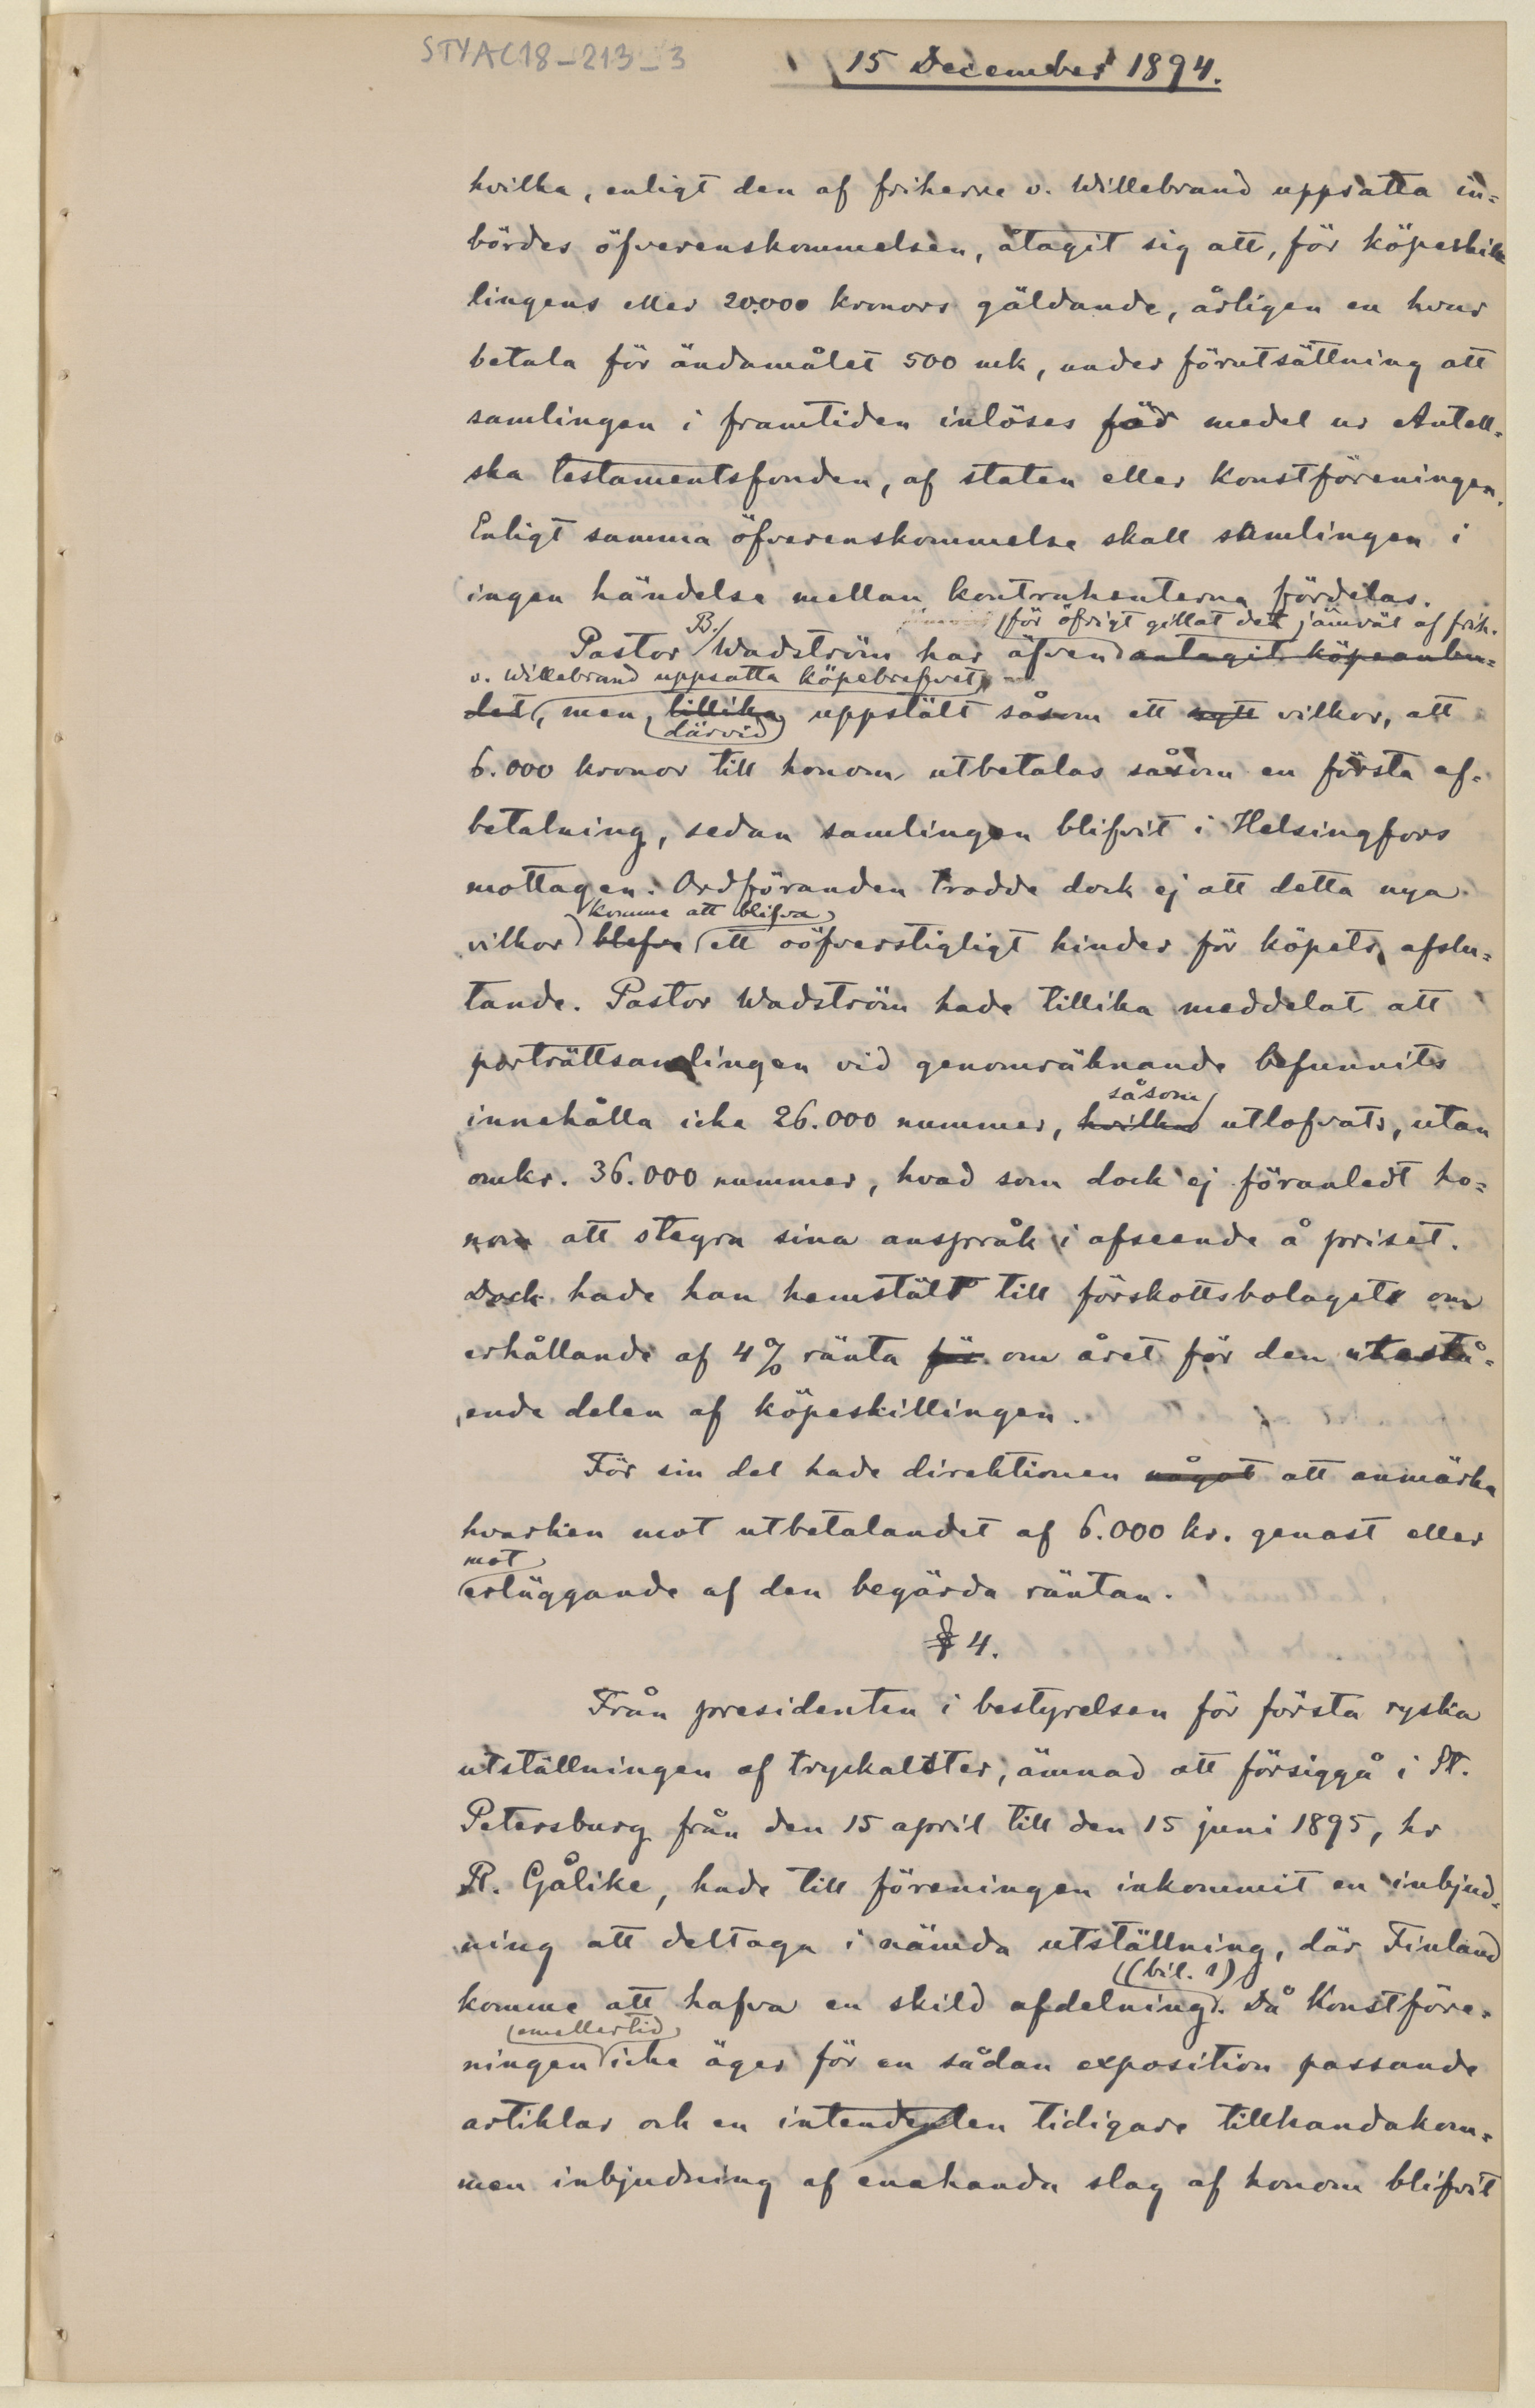 STYAC18_213_3
15 December 1894.
hvilka, enligt den af friherre v. Willebrand uppsatta in-
bördes öfverenskommelsen, åtagit sig att, för köpeskil-
lingens eller 20.000 kronors gäldande, årligen en hvar
betala för ändamålet 500 mk, under förutsättning att
samlingen i framtiden inlöses för medel ur Antell-
ska testamentsfonden, af staten eller Konstföreningen.
Enligt samma öfverenskommelse skall samlingen i
ingen händelse mellan kontrahenterna fördelas.
för öfrigt gillat det jämväl af frih.
Pastor B. Wadström har äfven antagit köpeanbu-
v. Willebrand uppsatta köpebrefvet,
det, men tillika uppstält såsom ett nytt vilkor, att
därvid
6.000 kronor till honom utbetalas såsom en första af-
betalning, sedan samlingen blifvit i Helsingfors
mottagen. Ordföranden trodde dock ej att detta nya
komme att blifva
vilkor blefve ett oöfverstigligt hinder för köpets afslu-
tande. Pastor Wadström hade tillika meddelat att
porträttsamlingen vid genomräknande befunnits
såsom
innehålla icke 26.000 nummer, hvilka utlofvats, utan
omkr. 36.000 nummer, hvad som dock ej föranledt ho-
nom att stegra sina anspråk i afseende å priset.
Dock hade han hemstält till förskottsbolaget om
erhållande af 4 % ränta för om året för den utestå-
ende delen af köpeskillingen.
För sin del hade direktionen något att anmärka
hvarken mot utbetalandet af 6.000 kr. genast eller
mot
erläggande af den begärda räntan.
§ 4.
Från presidenten i bestyrelsen för första ryska
utställningen af tryckalster, ämnad att försiggå i St.
Petersburg från den 15 april till den 15 juni 1895, hr
R. Gålike, hade till föreningen inkommit en inbjud-
ning att deltaga i nämda utställning, där Finland
(bil. 1)
komme att hafva en skild afdelning. Då Konstföre-
emellertid
ningen icke äger för en sådan exposition passande
artiklar och en intendenten tidigare tillhandakom-
men inbjudning af enahanda slag af honom blifvit